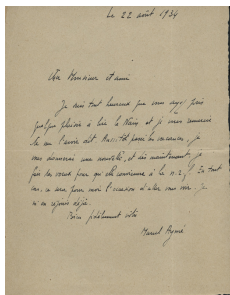 Le 22 août 1934
Cher Monsieur et ami
Je suis tout heureux que vous ayez pris
quelque plaisir à lire le Nain et je vous remercie
de me l'avoir dit. Aussitôt passé les vacances, je
vous donnerai une nouvelle, et dès maintenant, je
fais des vœux pour qu'elle convienne à la n.r.f. En tout
cas, ce sera pour moi l'occasion d'aller vous voir. Je
m'en réjouis déjà.
Bien fidèlement vôtre
Marcel Aymé